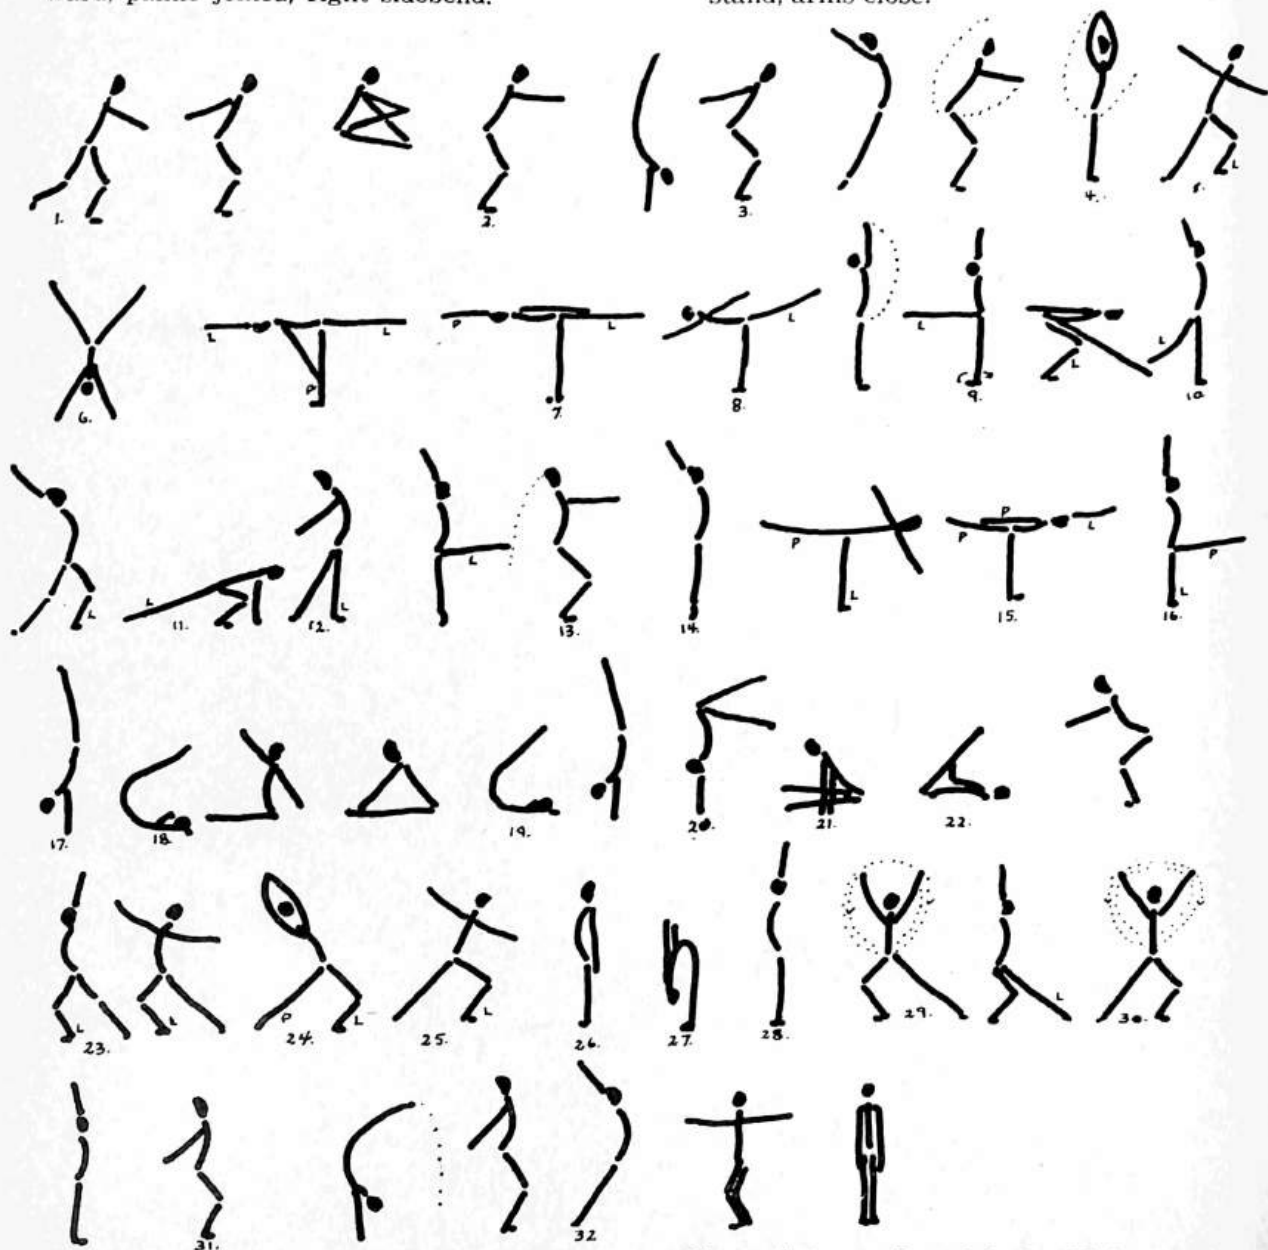 ward, palms joined, right sidebend.
stand, arms close.
1. 2. 3. 4. 5. L
6. L P L P L 7. L 8. L 9. L L 10.
L L 11. L 12. L 13. 14. P L P P L 15. P L 16.
17. 18. 19. 20. 21. 22.
L 23. L P 24. L 25. L 26. 27. 28. 29. L 30.
31. 32